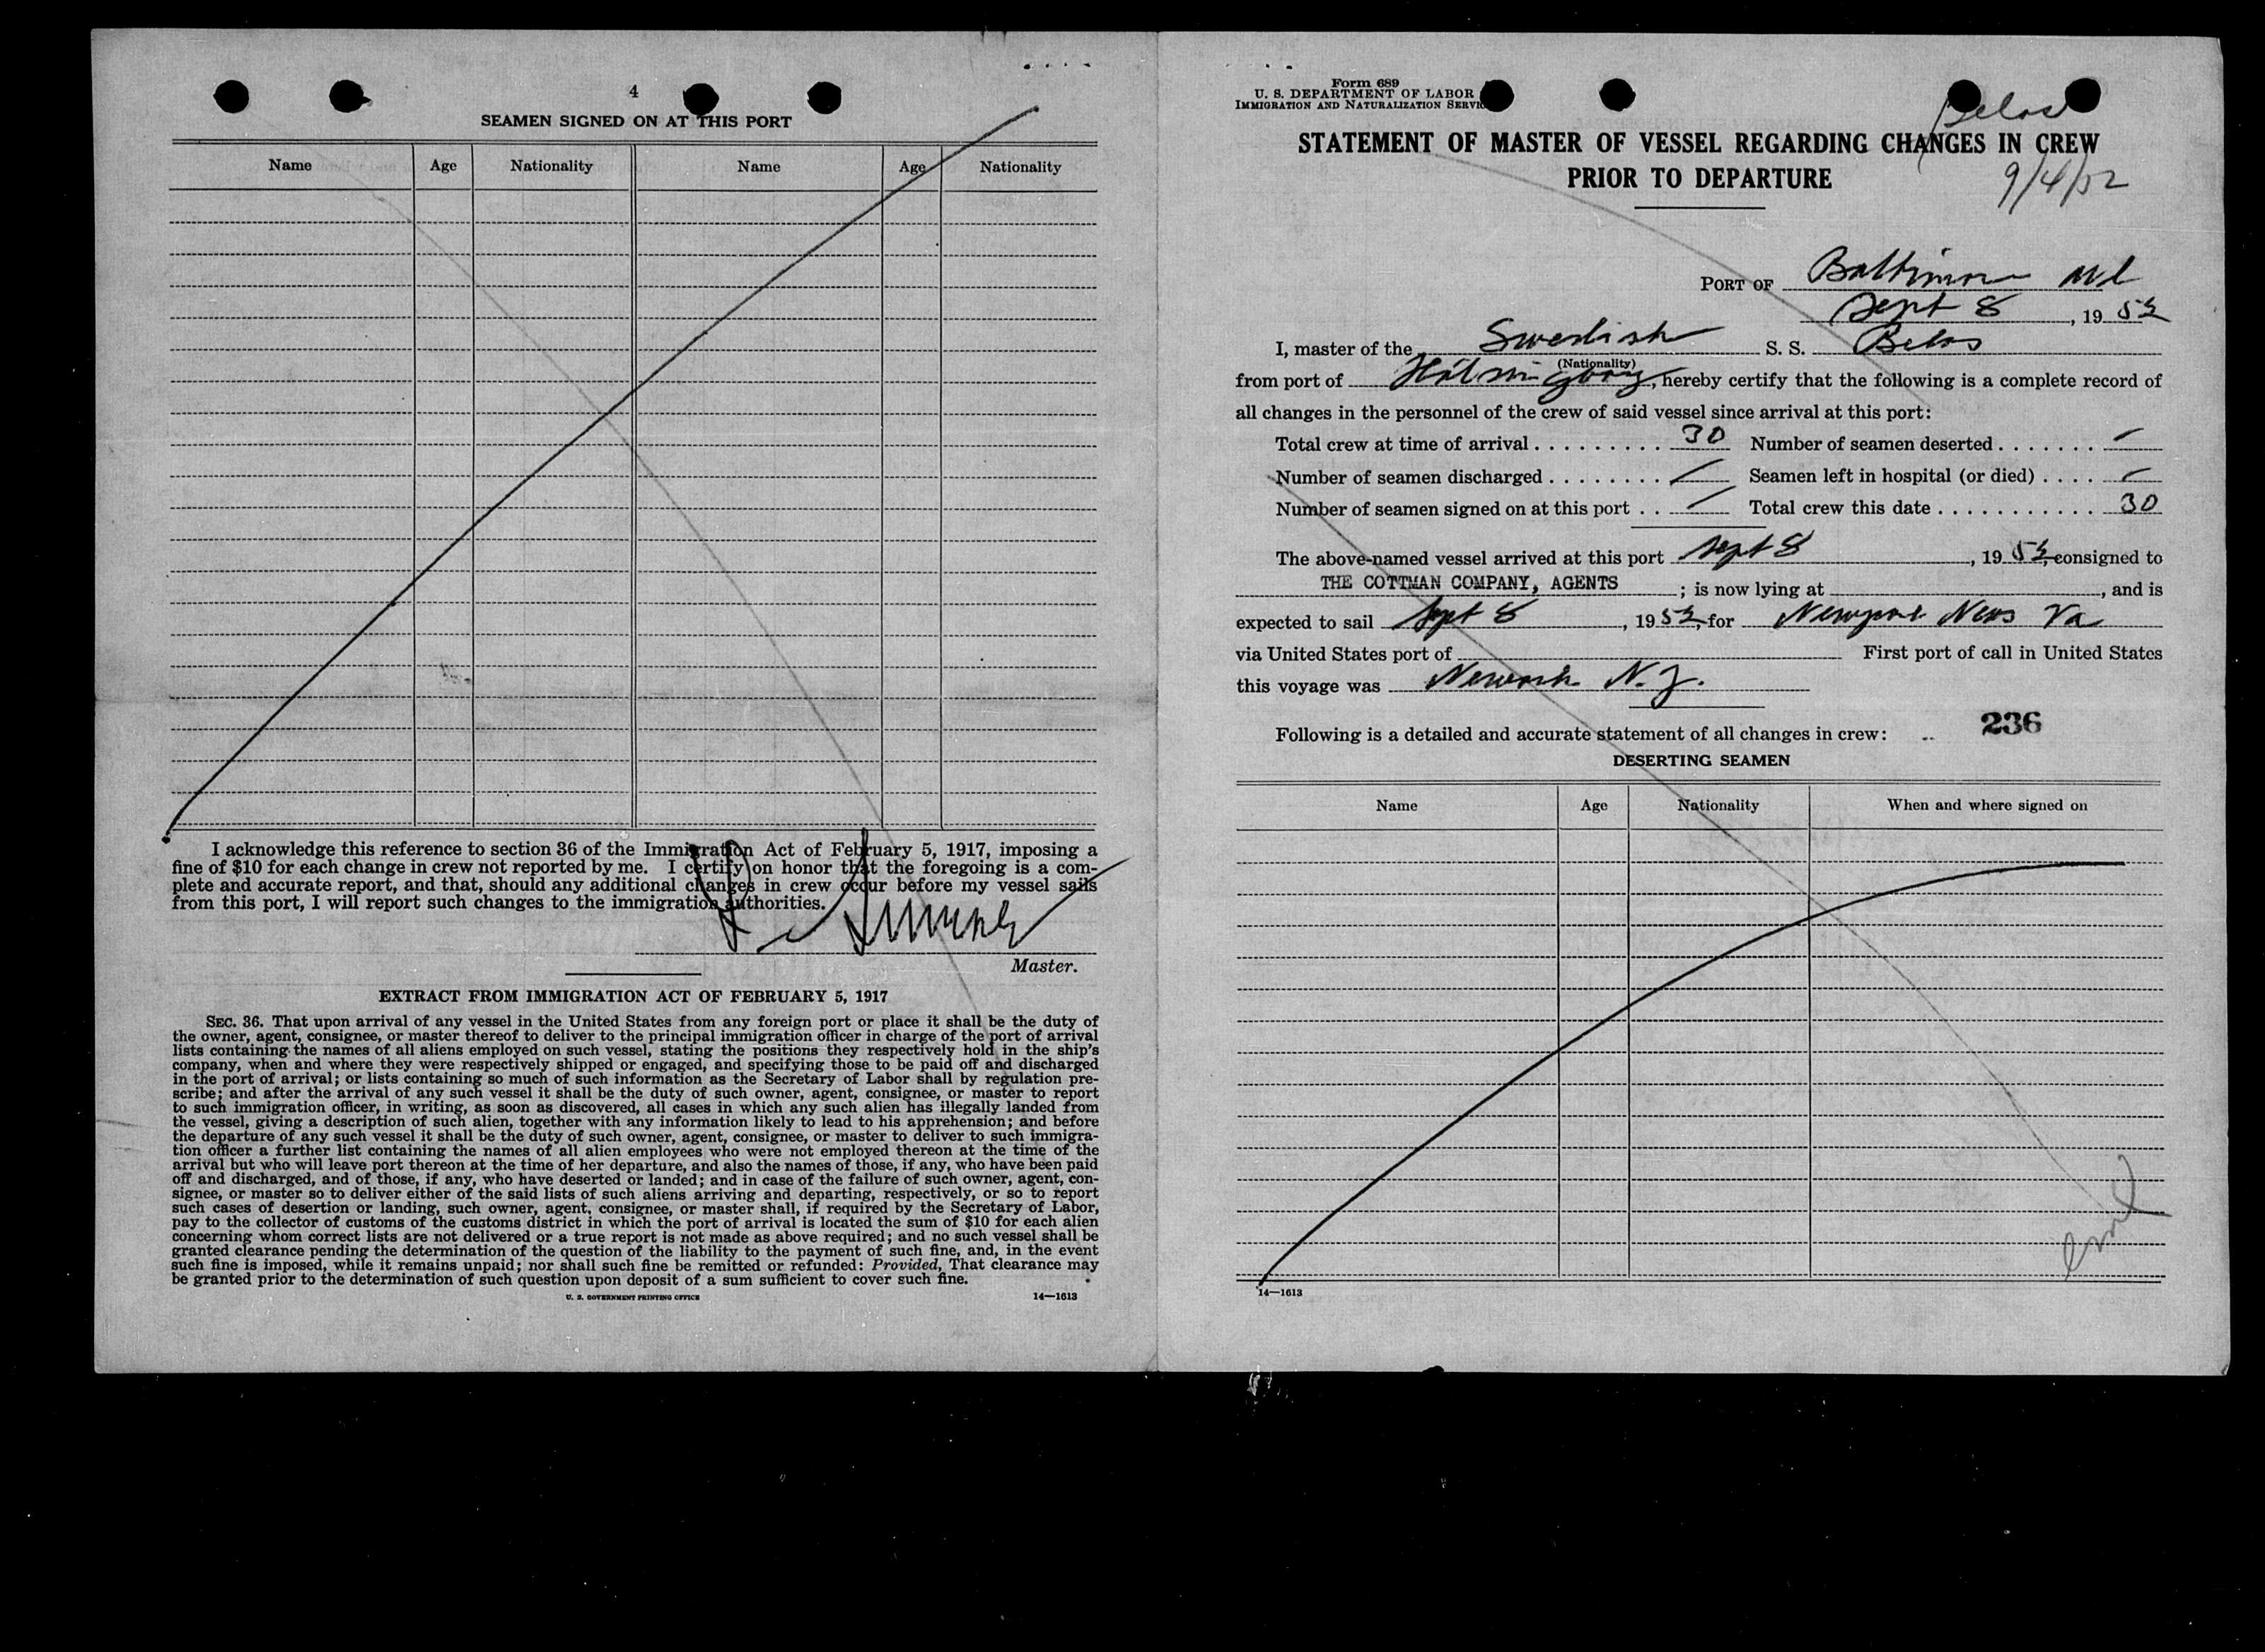 4
SEAMEN SIGNED ON AT THIS PORT
Name Age Nationality Name Age Nationality
I acknowledge this reference to section 36 of the Immigration Act of February 5, 1917, imposing a
fine of $10 for each change in crew not reported by me. I certify on honor that the foregoing is a com-
plete and accurate report, and that, should any additional changes in crew occur before my vessel sails
from this port, I will report such changes to the immigration authorities.
Master.
EXTRACT FROM IMMIGRATION ACT OF FEBRUARY 5, 1917
SEC. 36. That upon arrival of any vessel in the United States from any foreign port or place it shall be the duty of
the owner, agent, consignee, or master thereof to deliver to the principal immigration officer in charge of the port of arrival
lists containing the names of all aliens employed on such vessel, stating the positions they respectively hold in the ship's
company, when and where they were respectively shipped or engaged, and specifying those to be paid off and discharged
in the port of arrival; or lists containing so much of such information as the Secretary of Labor shall by regulation pre-
scribe; and after the arrival of any such vessel it shall be the duty of such owner, agent, consignee, or master to report
to such immigration officer, in writing, as soon as discovered, all cases in which any such alien has illegally landed from
the vessel, giving a description of such alien, together with any information likely to lead to his apprehension; and before
the departure of any such vessel it shall be the duty of such owner, agent, consignee, or master to deliver to such immigra-
tion officer a further list containing the names of all alien employees who were not employed thereon at the time of the
arrival but who will leave port thereon at the time of her departure, and also the names of those, if any, who have been paid
off and discharged, and of those, if any, who have deserted or landed; and in case of the failure of such owner, agent, con-
signee, or master so to deliver either of the said lists of such aliens arriving and departing, respectively, or so to report
such cases of desertion or landing, such owner, agent, consignee, or master shall, if required by the Secretary of Labor,
pay to the collector of customs of the customs district in which the port of arrival is located the sum of $10 for each alien
concerning whom correct lists are not delivered or a true report is not made as above required; and no such vessel shall be
granted clearance pending the determination of the question of the liability to the payment of such fine, and, in the event
such fine is imposed, while it remains unpaid; nor shall such fine be remitted or refunded: Provided, That clearance may
be granted prior to the determination of such question upon deposit of a sum sufficient to cover such fine.
U. S. GOVERNMENT PRINTING OFFICE 14—1613
Form 689
U. S. DEPARTMENT OF LABOR
IMMIGRATION AND NATURALIZATION SERVICE
Belos
STATEMENT OF MASTER OF VESSEL REGARDING CHANGES IN CREW
PRIOR TO DEPARTURE
9/4/52
PORT OF Baltimore Md
Sept 8, 1952
I, master of the Swedish S. S. Belos
(Nationality)
from port of Hälsingborg, hereby certify that the following is a complete record of
all changes in the personnel of the crew of said vessel since arrival at this port:
Total crew at time of arrival . . . . . . . . . . 30 Number of seamen deserted . . . . . . . –
Number of seamen discharged . . . . . . . . – Seamen left in hospital (or died) . . . . –
Number of seamen signed on at this port . . – Total crew this date . . . . . . . . . . . . 30
The above-named vessel arrived at this port Sept 8, 1952, consigned to
THE COTTMAN COMPANY, AGENTS; is now lying at , and is
expected to sail Sept 8, 1952, for Newport News Va
via United States port of First port of call in United States
this voyage was Newark N.J.
236
Following is a detailed and accurate statement of all changes in crew:
DESERTING SEAMEN
Name Age Nationality When and where signed on
14—1613